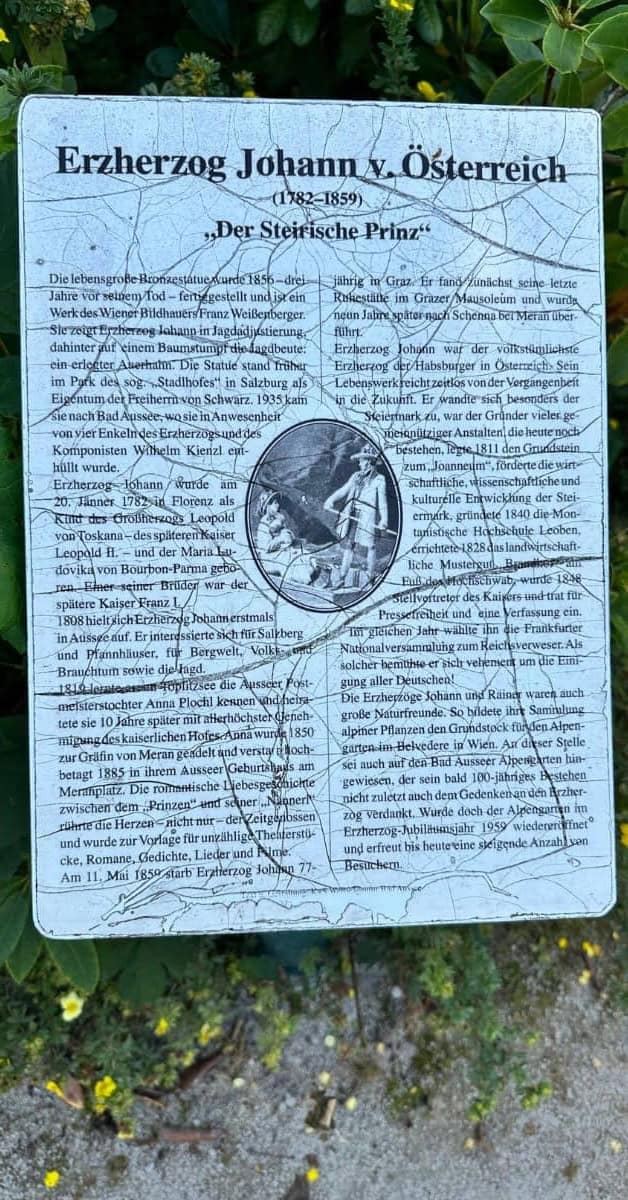 Erzherzog Johann v. Österreich
(1782–1859)
„Der Steirische Prinz“
Die lebensgroße Bronzestatue wurde 1856 – drei
Jahre vor seinem Tod – fertiggestellt und ist ein
Werk des Wiener Bildhauers Franz Weißenberger.
Sie zeigt Erzherzog Johann in Jagdadjustierung,
dahinter auf einem Baumstumpf die Jagdbeute:
ein erlegter Auerhahn. Die Statue stand früher
im Park des sog. „Stadlhofes“ in Salzburg als
Eigentum der Freiherrn von Schwarz. 1935 kam
sie nach Bad Aussee, wo sie in Anwesenheit
von vier Enkeln des Erzherzogs und des
Komponisten Wilhelm Kienzl ent-
hüllt wurde.
Erzherzog Johann wurde am
20. Jänner 1782 in Florenz als
Kind des Großherzogs Leopold
von Toskana – des späteren Kaiser
Leopold II. – und der Maria Lu-
dovika von Bourbon-Parma gebo-
ren. Einer seiner Brüder war der
spätere Kaiser Franz I.
1808 hielt sich Erzherzog Johann erstmals
in Aussee auf. Er interessierte sich für Salzberg
und Pfannhäuser, für Bergwelt, Volk und
Brauchtum sowie die Jagd.
1819 lernte er am Toplitzsee die Ausseer Post-
meisterstochter Anna Plochl kennen und heira-
tete sie 10 Jahre später mit allerhöchster Geneh-
migung des kaiserlichen Hofes. Anna wurde 1850
zur Gräfin von Meran geadelt und verstarb hoch-
betagt 1885 in ihrem Ausseer Geburtshaus am
Meranplatz. Die romantische Liebesgeschichte
zwischen dem „Prinzen“ und seiner „Nannerl“
rührte die Herzen – nicht nur – der Zeitgenossen
und wurde zur Vorlage für unzählige Theaterstü-
cke, Romane, Gedichte, Lieder und Filme.
Am 11. Mai 1859 starb Erzherzog Johann 77-
jährig in Graz. Er fand zunächst seine letzte
Ruhestätte im Grazer Mausoleum und wurde
neun Jahre später nach Schenna bei Meran über-
führt.
Erzherzog Johann war der volkstümlichste
Erzherzog der Habsburger in Österreich. Sein
Lebenswerk reicht zeitlos von der Vergangenheit
in die Zukunft. Er wandte sich besonders der
Steiermark zu, war der Gründer vieler ge-
meinnütziger Anstalten, die heute noch
bestehen, legte 1811 den Grundstein
zum „Joanneum“, förderte die wirt-
schaftliche, wissenschaftliche und
kulturelle Entwicklung der Stei-
ermark, gründete 1840 die Mon-
tanistische Hochschule Leoben,
errichtete 1828 das landwirtschaft-
liche Mustergut Brandhof am
Fuß des Hochschwab, wurde 1848
Stellvertreter des Kaisers und trat für
Pressefreiheit und eine Verfassung ein.
Im gleichen Jahr wählte ihn die Frankfurter
Nationalversammlung zum Reichsverweser. Als
solcher bemühte er sich vehement um die Eini-
gung aller Deutschen!
Die Erzherzöge Johann und Rainer waren auch
große Naturfreunde. So bildete ihre Sammlung
alpiner Pflanzen den Grundstock für den Alpen-
garten im Belvedere in Wien. An dieser Stelle
sei auch auf den Bad Ausseer Alpengarten hin-
gewiesen, der sein bald 100-jähriges Bestehen
nicht zuletzt auch dem Gedenken an den Erzher-
zog verdankt. Wurde doch der Alpengarten im
Erzherzog-Jubiläumsjahr 1959 wiedereröffnet
und erfreut bis heute eine steigende Anzahl von
Besuchern.